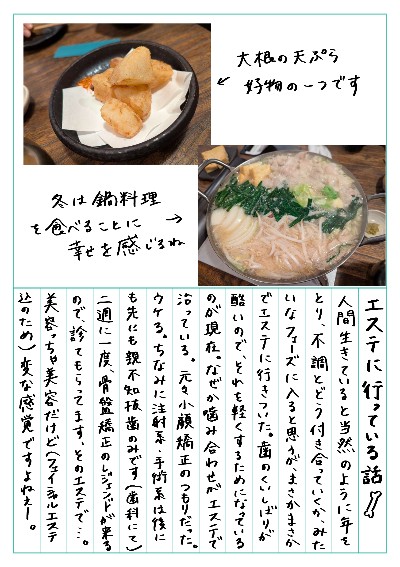 大根の天ぷら
好物の一つです
冬は鍋料理
を食べることに
幸せを感じるね
エステに行っている話
人間生きていると当然のように年を
とり、不調とどう付き合っていくか、みた
いなフェーズに入ると思うが、まさかまさか
でエステに行きついた。歯のくいしばりが
酷いので、それを軽くするためになっている
のが現在。なぜか噛み合わせがエステで
治っている。元々小顔矯正のつもりだった。
ウケる。ちなみに注射系・手術系は後に
も先にも親不知抜歯のみです(歯科にて)
二週に一度、骨盤矯正のレジェンドが来る
ので診てもらってます、そのエステで…。
美容っちゃ美容だけど(フェイシャルエステ
込のため)変な感覚ですよねぇー。